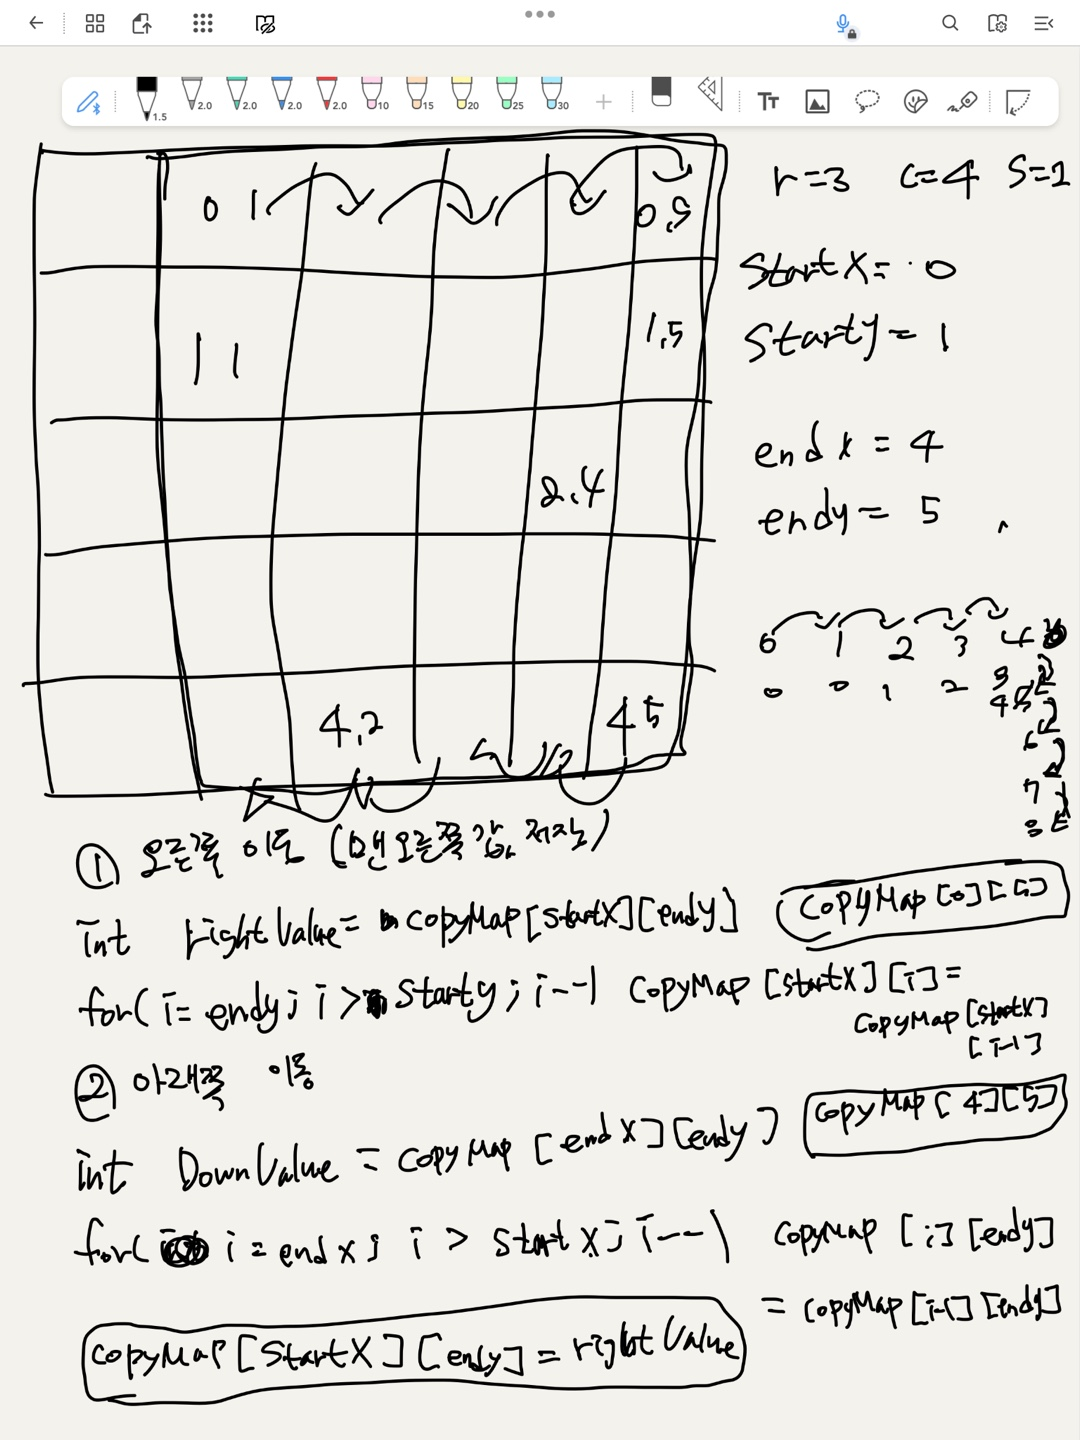 1.5 2.0 2.0 2.0 2.0 10 15 20 25 30 Tt
r=3 c=4 S=2
0 1 0,5
startX= 0
1 1 1,5
starty= 1
2,4
endx = 4
endy= 5
0 1 2 3 4
0 0 1 2 3
4
6
7
8
4,2 4 5
① 오른쪽 이동 (맨 오른쪽 값 저장)
int rightValue= copyMap[startX][endy] copyMap[0][5]
for( i= endy; i > starty; i--) copyMap [startX][i]=
copyMap[startX]
[i-1]
② 아래쪽 이동
int DownValue = copyMap [endX][endy] copyMap[4][5]
for( i = endx; i > startx; i--) copyMap [i][endy]
= copyMap[i-1][endy]
copyMap[startX][endy] = rightValue